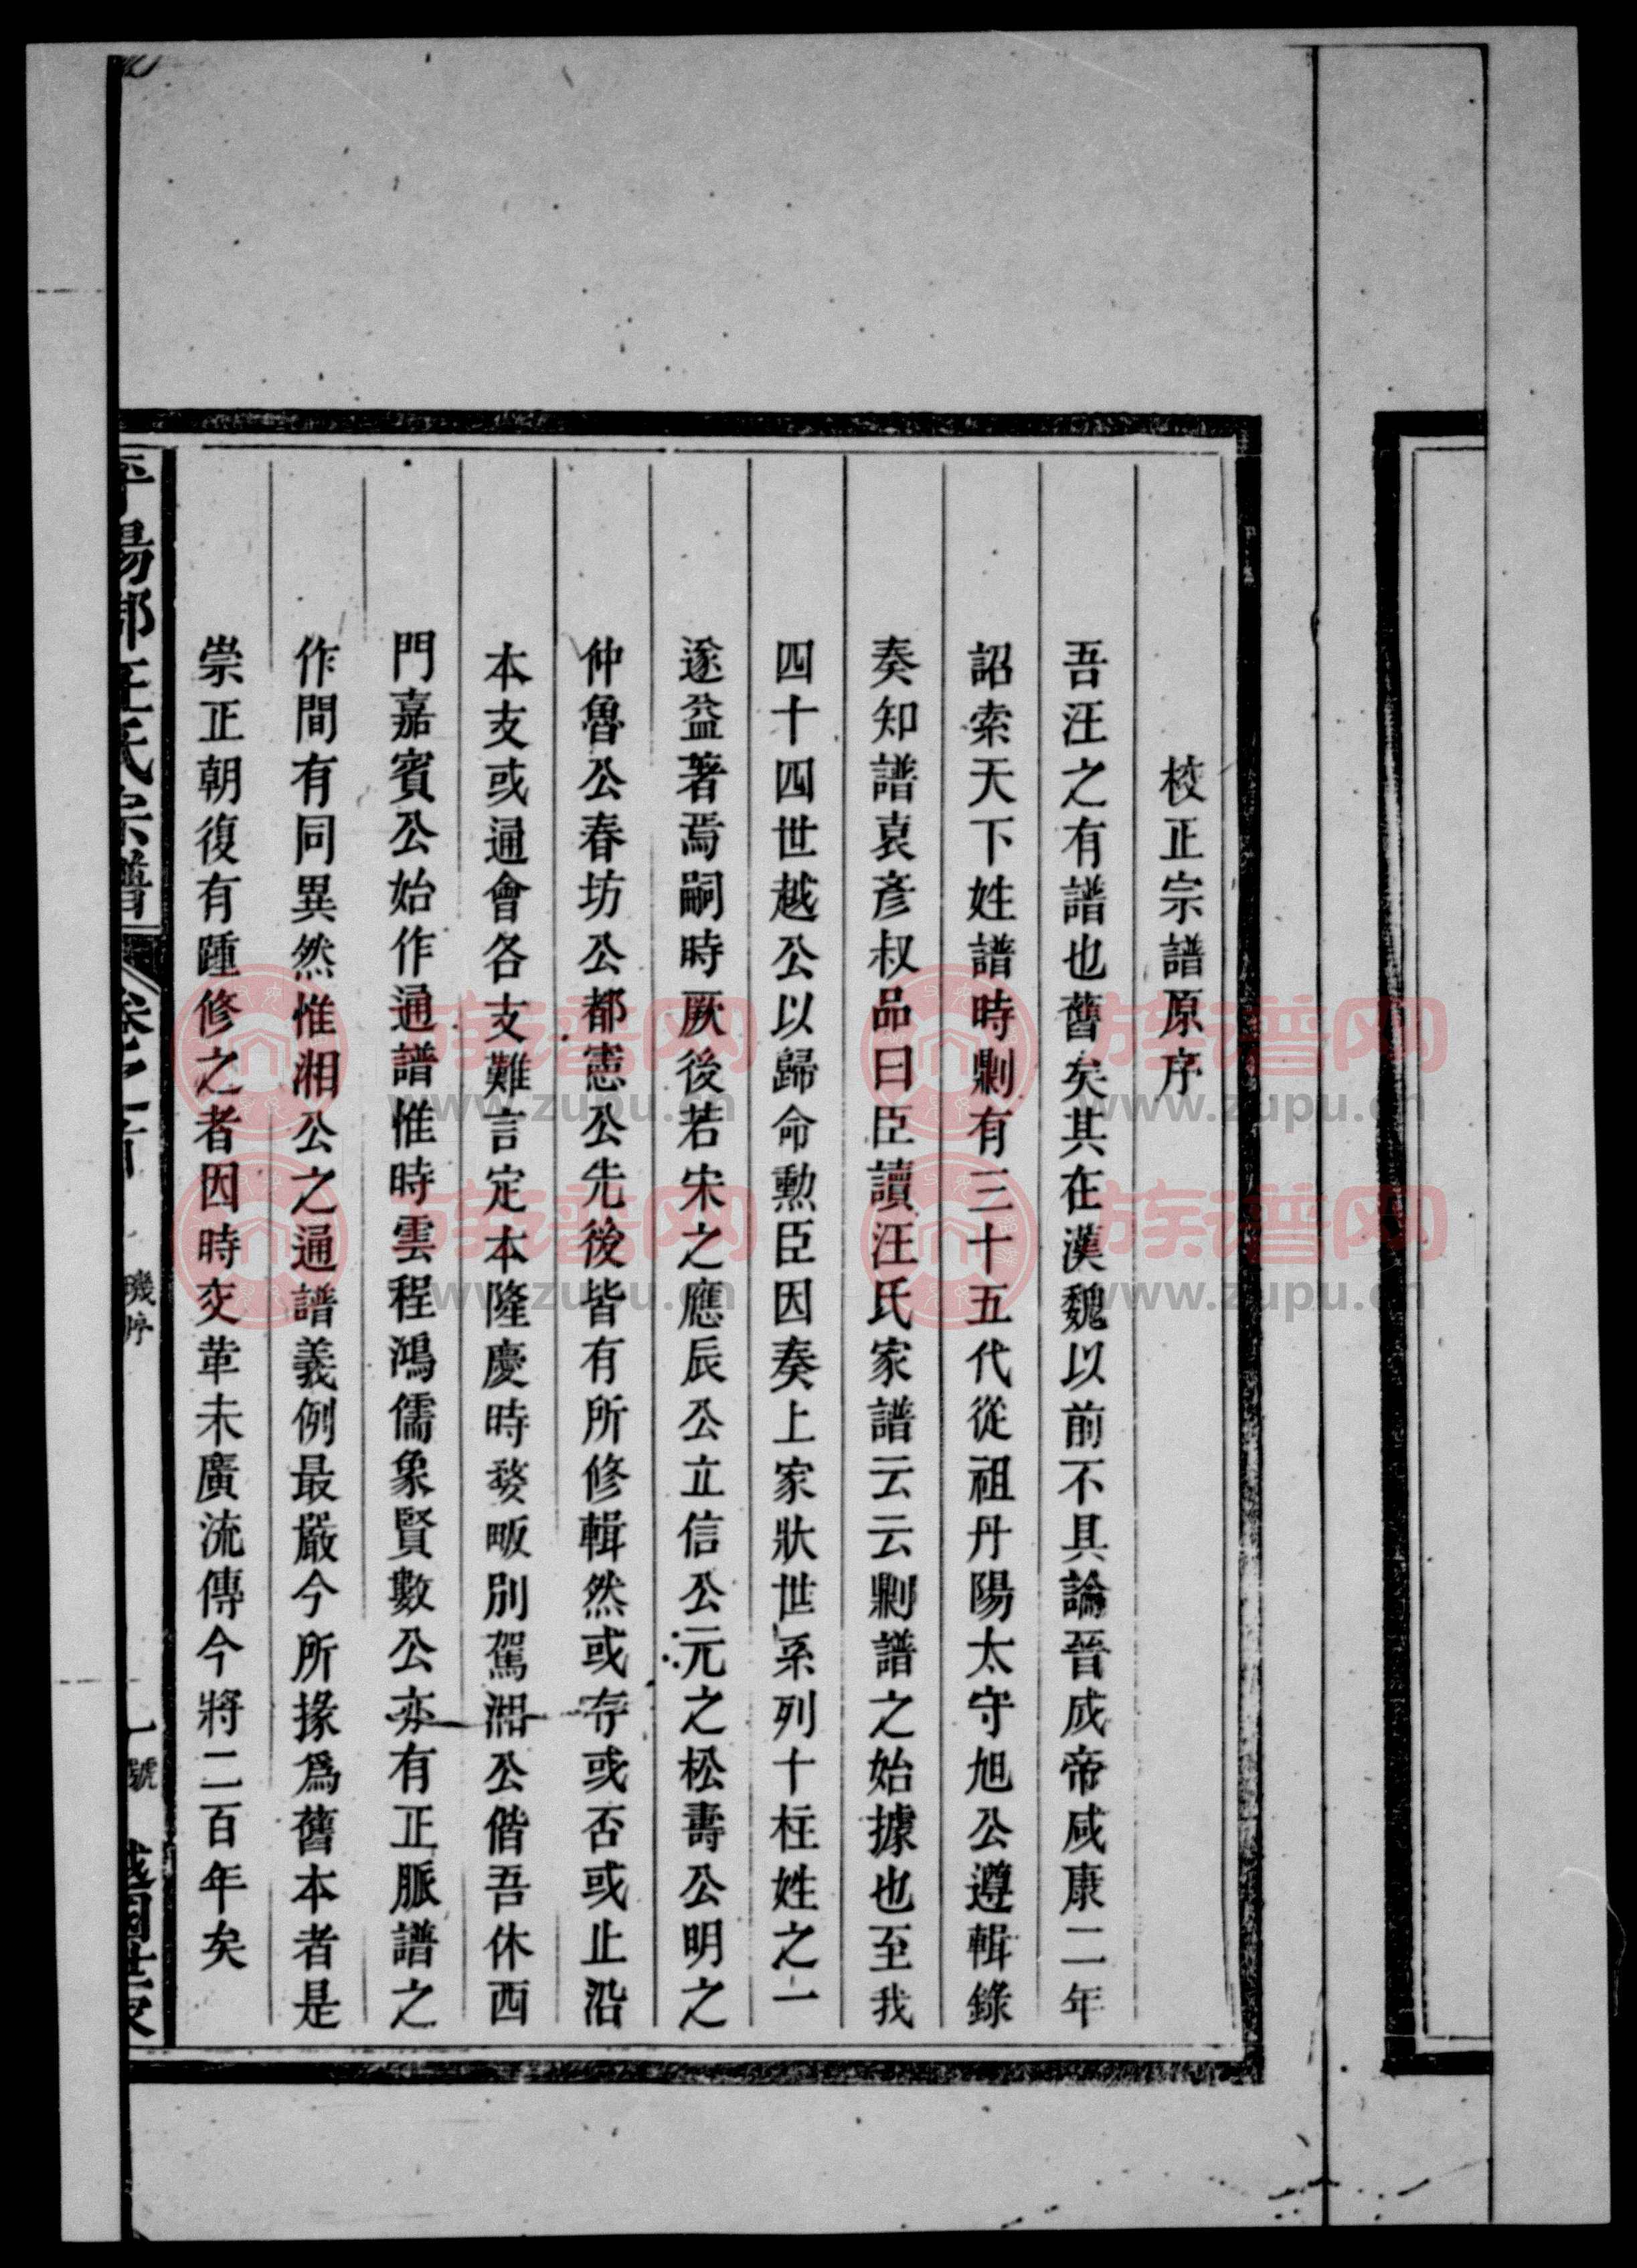 校正宗譜原序
吾汪之有譜也舊矣其在漢魏以前不具論晉成帝咸康二年
詔索天下姓譜時剿有三十五代從祖丹陽太守旭公遵輯錄
奏知譜哀彥叔品曰臣讀汪氏家譜云云剿譜之始據也至我
四十四世越公以歸命勲臣因奏上家狀世系列十柱姓之一
遂益著焉嗣時厥後若宋之應辰公立信公元之松壽公明之
仲魯公春坊公都憲公先後皆有所修輯然或存或否或止沿
本支或通會各支難言定本隆慶時婺畈別駕湘公偕吾休西
門嘉賓公始作通譜惟時雲程鴻儒象賢數公亦有正脈譜之
作間有同異然惟湘公之通譜義例最嚴今所據爲舊本者是
崇正朝復有踵修之者因時交革未廣流傳今將二百年矣
平陽郡汪氏宗譜 卷之首 璣序 一號 越國世家
族谱网
www.zupu.cn
族谱网
www.zupu.cn
族谱网
www.zupu.cn
族谱网
www.zupu.cn